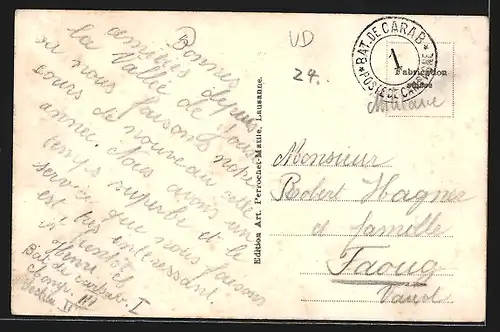 Bonnes
amitiés depuis
la Vallée de Joux
où nous faisons notre
cours de nouveau cette
année. Nous avons un
temps superbe et le
service que nous faisons
est très intéressant.
A bientôt
Henri
Bat. de carab. I
Comp. III
Section II
VD
24.
Edition Art. Perrochet-Matile, Lausanne.
* BAT. DE CARAB. *
1
POSTE DE CAMPAGNE
Fabrication
suisse
Militaire
Monsieur
Robert Hagner
et famille
Faoug
Vaud